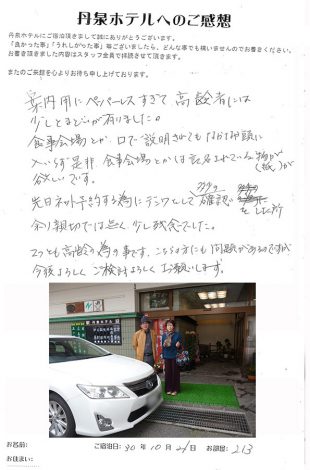 丹泉ホテルへのご感想
丹泉ホテルにご宿泊頂きまして誠にありがとうございます。
「良かった事」「うれしかった事」等ございましたら、どんな事でも構いませんのでお書きください。
お書き頂きました内容はスタッフ全員で拝読させて頂きます。
またのご来館を心よりお待ち申し上げております。
案内用にペーパーレスすぎて高齢者には
少しとまどいが有りました。
食事会場とか、口で説明されてもなかなか頭に
入いらず是非食事会場とかは記名されている物が(紙)が
欲しいです。
先日ネット予約する為にデンワをして 確認 をした所
余り親切では無く少し残念でした。
二つとも高齢の為の事です、こちらの方にも問題があるのですが
今後よろしくご検討よろしくお願いします。
丹泉ホテル
お名前:
ご宿泊日: 30 年 10 月 21 日 お部屋: 213
お住まい: